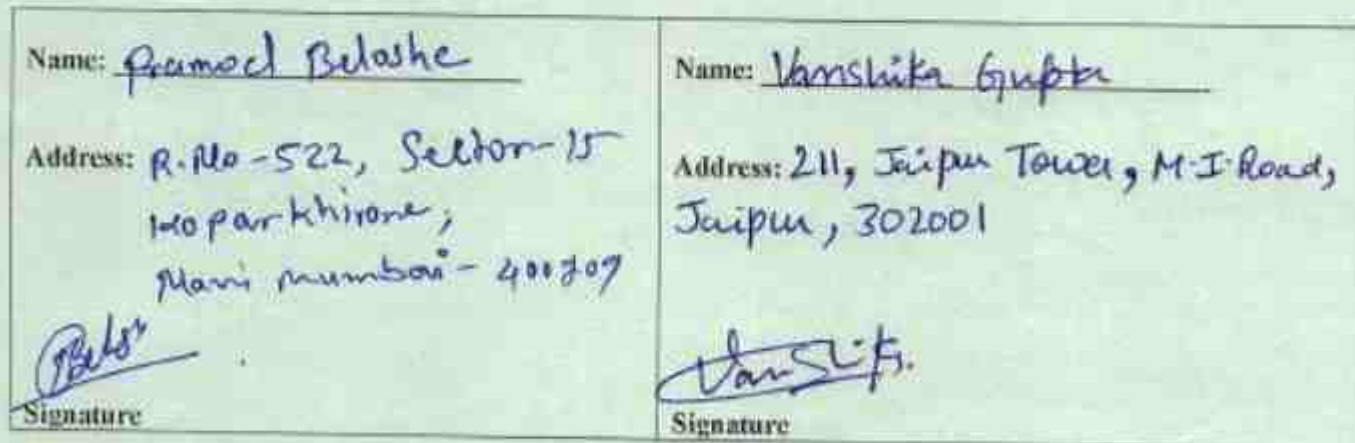 Name: Pramod Beloshe
Address: R.No-522, Sector-15
Koparkhirane,
Navi mumbai - 400709
Signature
Name: Vanshika Gupta
Address: 211, Jaipur Tower, M.I. Road,
Jaipur, 302001
Vanshika
Signature